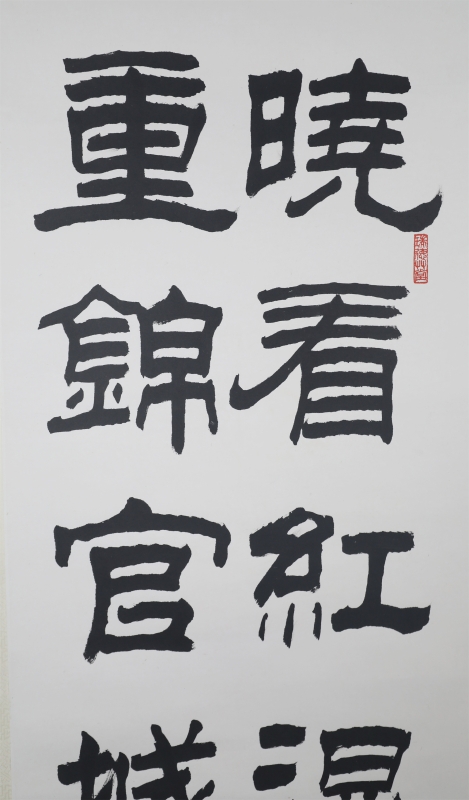 曉看紅
重錦官城